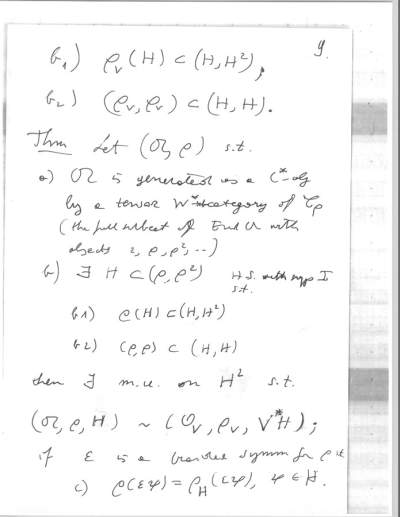 9.
b₁) ρ_V(H) ⊂ (H,H²),
b₂) (ρ_V, ρ_V) ⊂ (H,H).
Thm Let (𝒪, ρ) s.t.
a) 𝒪 is generated as a C*-alg
by a tensor W*-category of 𝒯_ρ
(the full subcat of End 𝒪 with
objects ι, ρ, ρ², ...)
b) ∃ H ⊂ (ρ, ρ²) H.S. with supp I
s.t.
b1) ρ(H) ⊂ (H,H²)
b2) (ρ,ρ) ⊂ (H,H)
then ∃ m.u. on H² s.t.
(𝒪, ρ, H) ~ (𝒪_V, ρ_V, V*H);
if ε is a braided symm for ρ
c) ρ(εφ) = ρ_H(εφ), φ ∈ H.